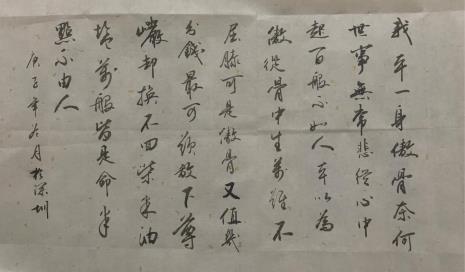 我本一身傲骨奈何
世事無常悲從心中
起百般不如人本以為
傲從骨中生萬難不
屈膝可是傲骨又值幾
分錢最可頌放下尊
嚴卻換不回柴米油
鹽萬般皆是命半
點不由人
庚子年 月於深圳